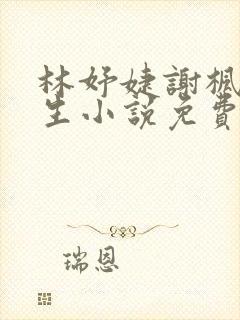 林妤婕謝楓
生小說免費
瑞恩